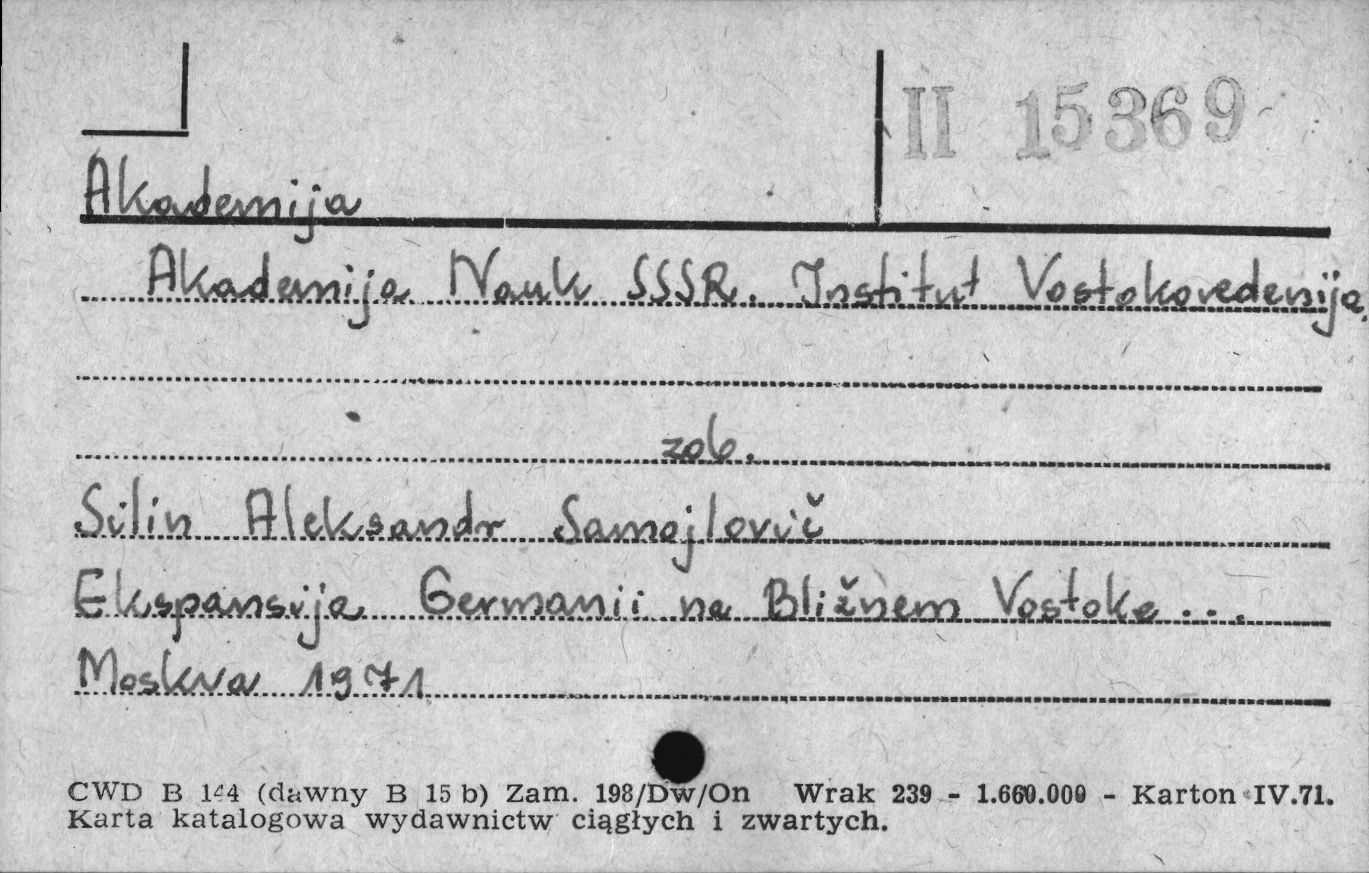 II 15369
Akademija
Akademija Nauk SSSR. Institut Vostokovedenija.
zob.
Silin Aleksandr Samojlovič
Ekspansija Germanii na Bližnem Vostoke...
Moskva 1971
CWD B 144 (dawny B 15 b) Zam. 198/Dw/On Wrak 239 - 1.660.000 - Karton IV.71.
Karta katalogowa wydawnictw ciągłych i zwartych.